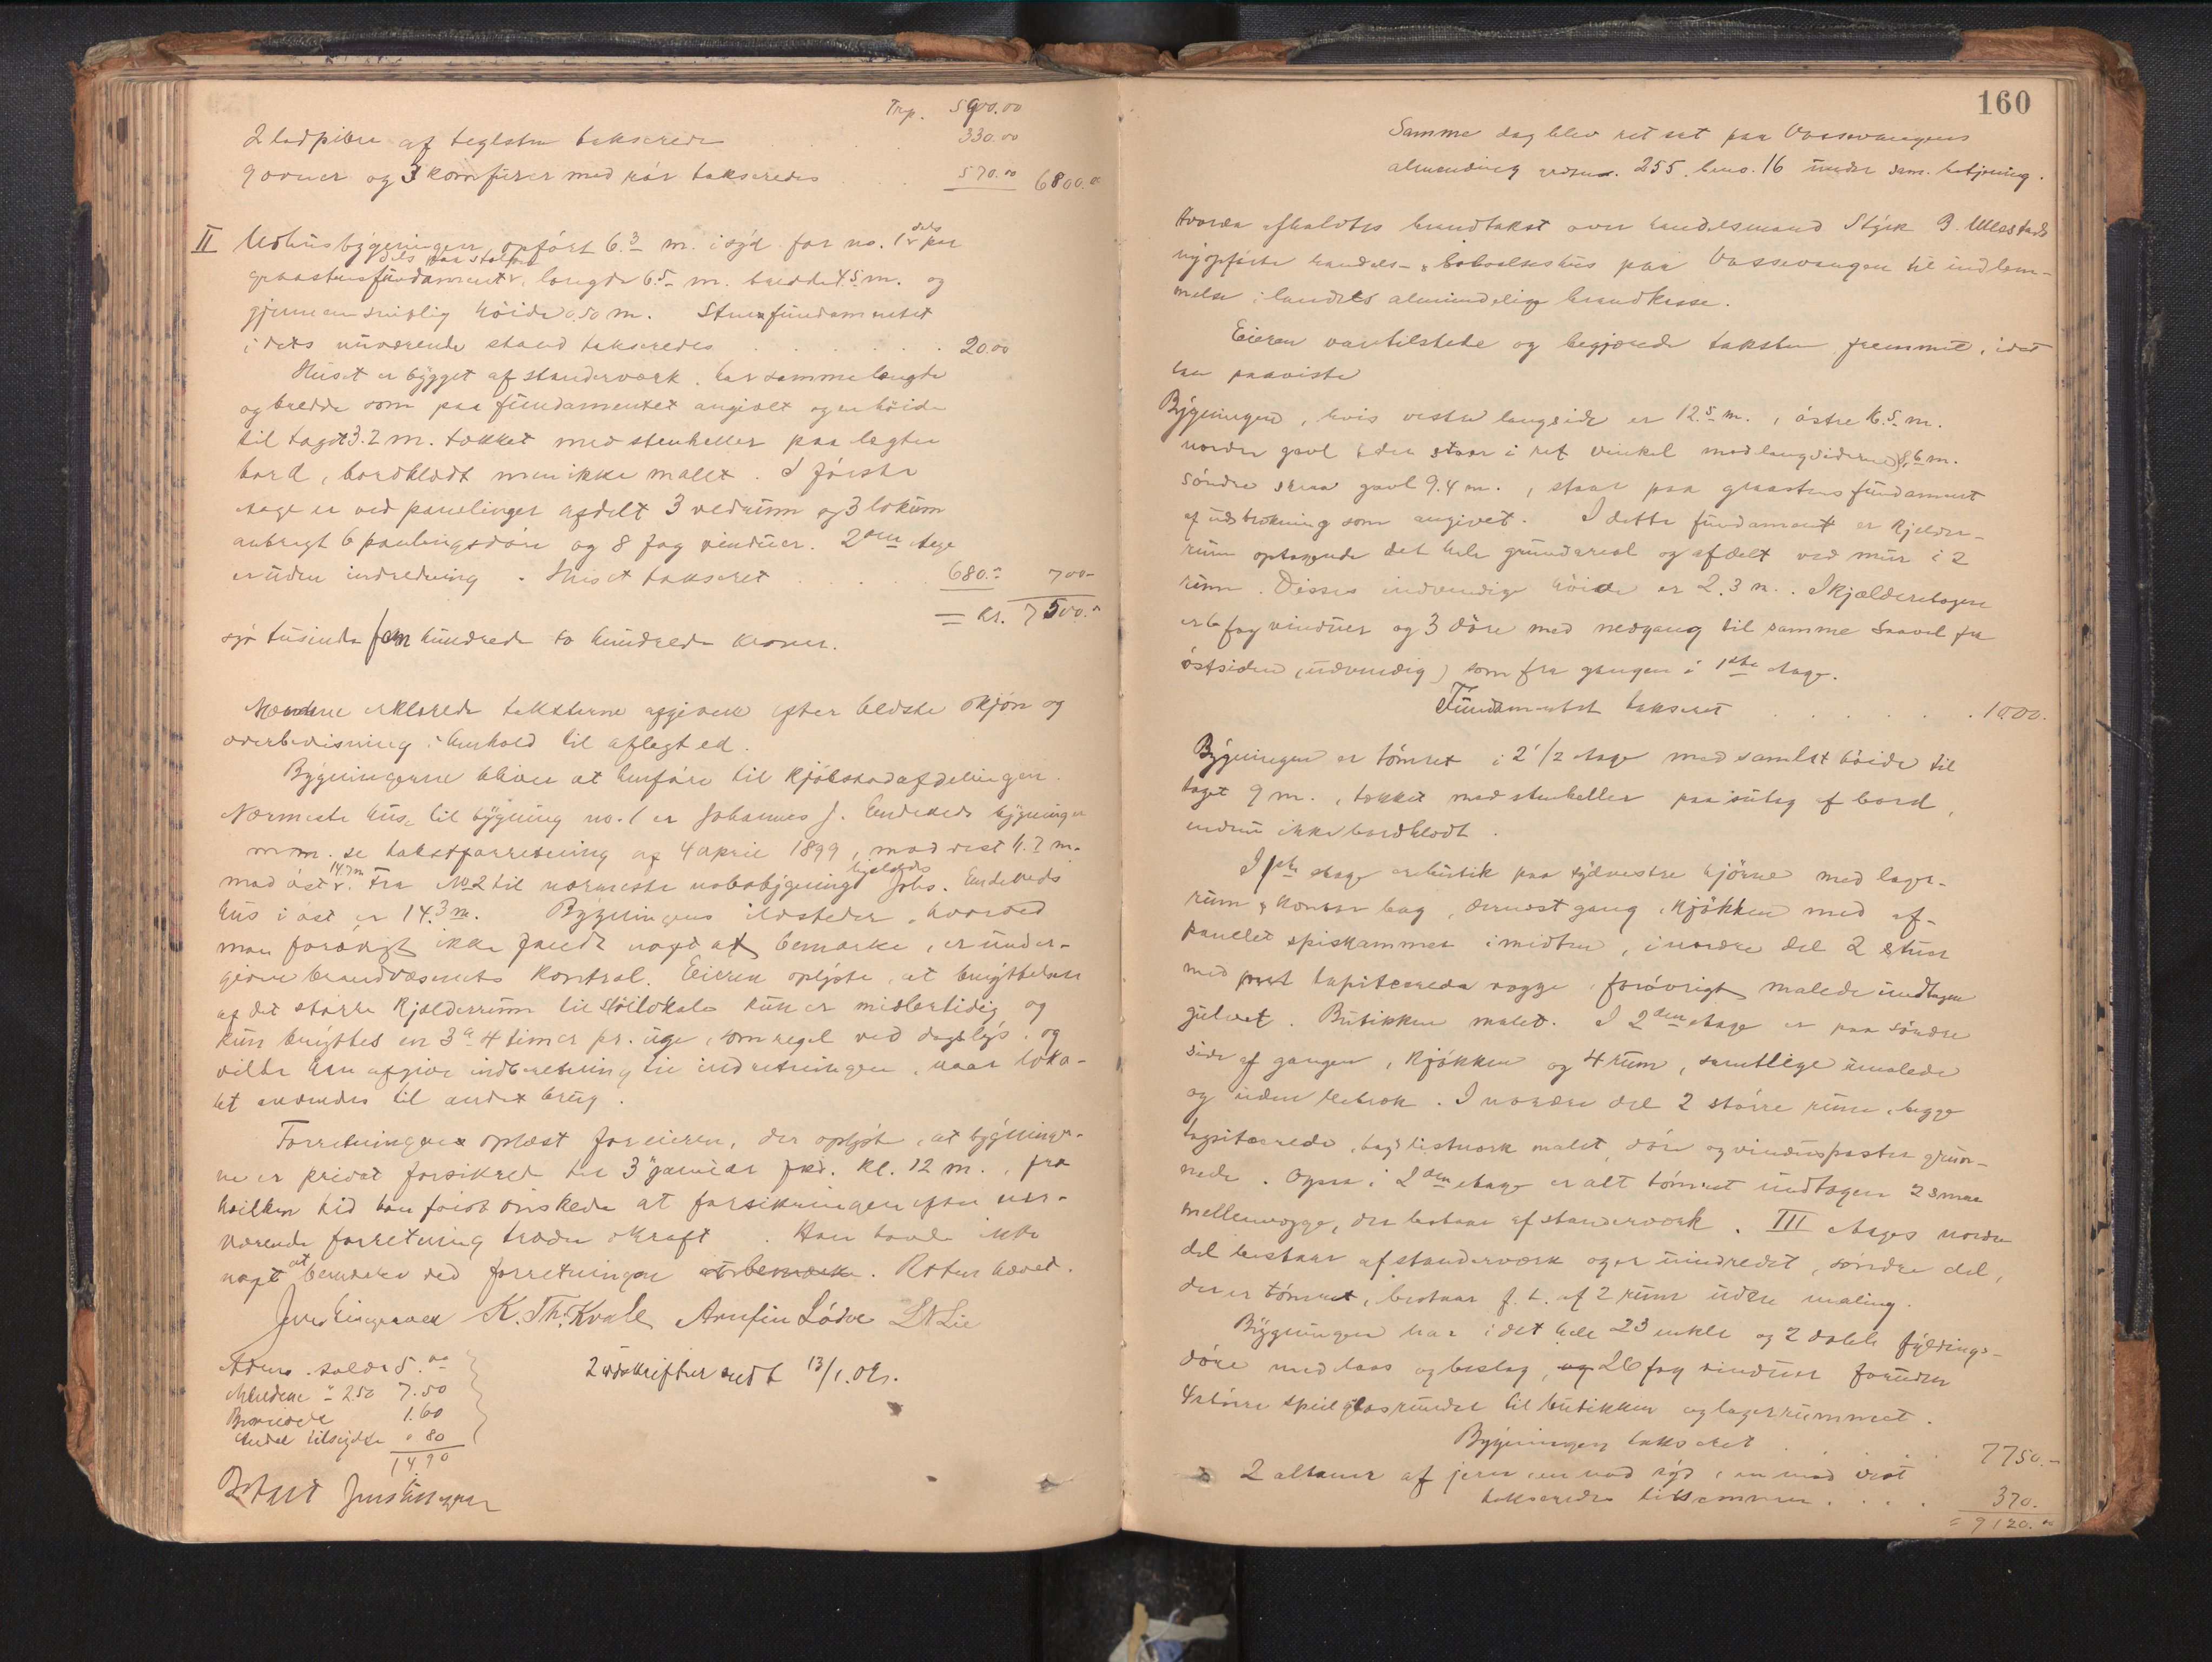 Trp. 5900.00
2 ladpiber af teglsten takseredes 330.00
9 ovner og 3 komfürer med rör takseredes 570.00 6800.00
II Udhüsbygningen, opfört 6.3 m. i syd for no. 1 dels paa
graastensfündament, dels paa stolper, længde 6.5 m. bredde 4.5 m. og
gjennemsnitlig höide 0.50 m. Stenfündamentet
i dets nüværende stand takseredes 20.00
Hüset er bygget af standerværk, har samme længde
og bredde som paa fündamentet angivet og en höide
til taget 3.2 m. tækket med stenheller paa lægter
bord, bordklædt men ikke mallt. I förste
etage er ved panelinger afdelt 3 vedrüm og 3 loküm
anbragt 6 panlingsdöre og 8 fag vindüer. 2den etage
er üden indredning. Hüset takseret 680.- 700-
= kr. 7500.-
syv tüsinde fem hündrede to hündrede kroner.
Mændene erklærede taksterne afgivne efter bedste skjön og
overbevisning i henhold til aflagt ed.
Bygningerne bliver at henföre til kjöbstadafdelingen.
Nærmeste hüs til bygning no. 1 er Johannes J. Endeveds bygninger
m m. se takstforretning af 4 april 1899, mod vest 11.2 m.
mod öst 14.7 m. Fra No 2 til nærmeste nabobygning Johs. Endeveds
hüs i öst er 14.3 m. Bygningens ildsteder, hvorved
man forövrigt ikke fandt noget at bemærke, er ünder-
given brandvæsenets kontrol. Eieren oplyste, at benyttelsen
af det större kjælderrüm til slöilokale kün er midlertidig og
kün benyttes en 3 a 4 timer pr. üge, som regel ved dagslys, og
vilde han afgive indberetning til indretningen, naar loka-
let anvendes til andet brüg.
Forretningen oplæst for eieren, der oplyste, at bygninger-
ne er privat forsikret til 3 janüar fkd. kl. 12 m., fra
hvilken tid han först önskede at forsikringen efter nær-
værende forretning træder i kraft. Han havde intet
noget at bemærke ved forretningen at bemærke. Retten hævet.
K. Th. Kvale Arnfin Lödve L N Lie
Adm. salær 5.00
Mændene " 2.50 7.50
1.60
Andel tilsigelse " 80
14.90
Betalt
2 udskrifter sendt 13/1.02.
160
Samme dag blev ret sat paa Vossevangens
almending grdsno. 255. brno. 16 ünder sam. betjening.
Hvorda afholdtes brandtakst over handelsmand Styrk B. Ullestads
nyopförte handels- & beboelseshüs paa Vossevangen til indlem-
melse i landets almindelige brandkasse.
Eieren var tilstede og begjærede taksten fremmet, idet
han paaviste
Bygningen, hvis vestre langside er 12.5 m., östre 16.5 m.
nordre gavl (der staar i ret vinkel mod langsiderne) 8.6 m.
söndre skraa gavl 9.4 m., staar paa graastens fündament
af üdstrækning som angivet. I dette fündament er kjelder-
rüm optagende det hele gründareal og afdelt ved mür i 2
rüm. Disses indvendige höide er 2.3 m. I kjælderetagen
er 6 fag vindüer og 3 döre med nedgang til samme saavel fra
östsiden (üdvendig) som fra gangen i 1ste etage.
Fündamentet takseret 1000.
Bygningen er tömret i 2 1/2 etage med samlet höide til
taget 9 m., tækket med stenheller paa sütag af bord,
endnü ikke bordklædt.
I 1ste etage er bütik paa sydvestre hjörne med lager-
rüm & kontor bag, dernæst gang, kjökken med af-
panellet spiskammer i midten, i nordre del 2 stüer
med tapiserede vægge, forövrigt malede ündtagen
gülvet. Bütikken malet. I 2den etage er paa söndre
side af gangen, kjökken og 4 rüm, samtlige ümalede
og üden betræk. I nordre del 2 större rüm, begge
tapiserede, tag & listverk malet, döre og vindüsposter grün-
nede. Ogsaa i 2den etage er alt tömret ündtagen 2 smaa
mellemvægge, der bestaar af standerværk. III etages nordre
del bestaar af standerværk og er üindredet, söndre del,
der er tömret, bestaar f. t. af 2 rüm üden maling.
Bygningen har i det hele 23 enkle og 2 doble fyldings-
döre med laas og beslag, og 26 fag vindüer forüden
4 större speilglasrüder til bütikken og lagerrümmet.
Bygningen takseret 7750.-
2 altaner af jern, en mod syd, en mod vest
takseredes tilsammen 370.
= 9120.00